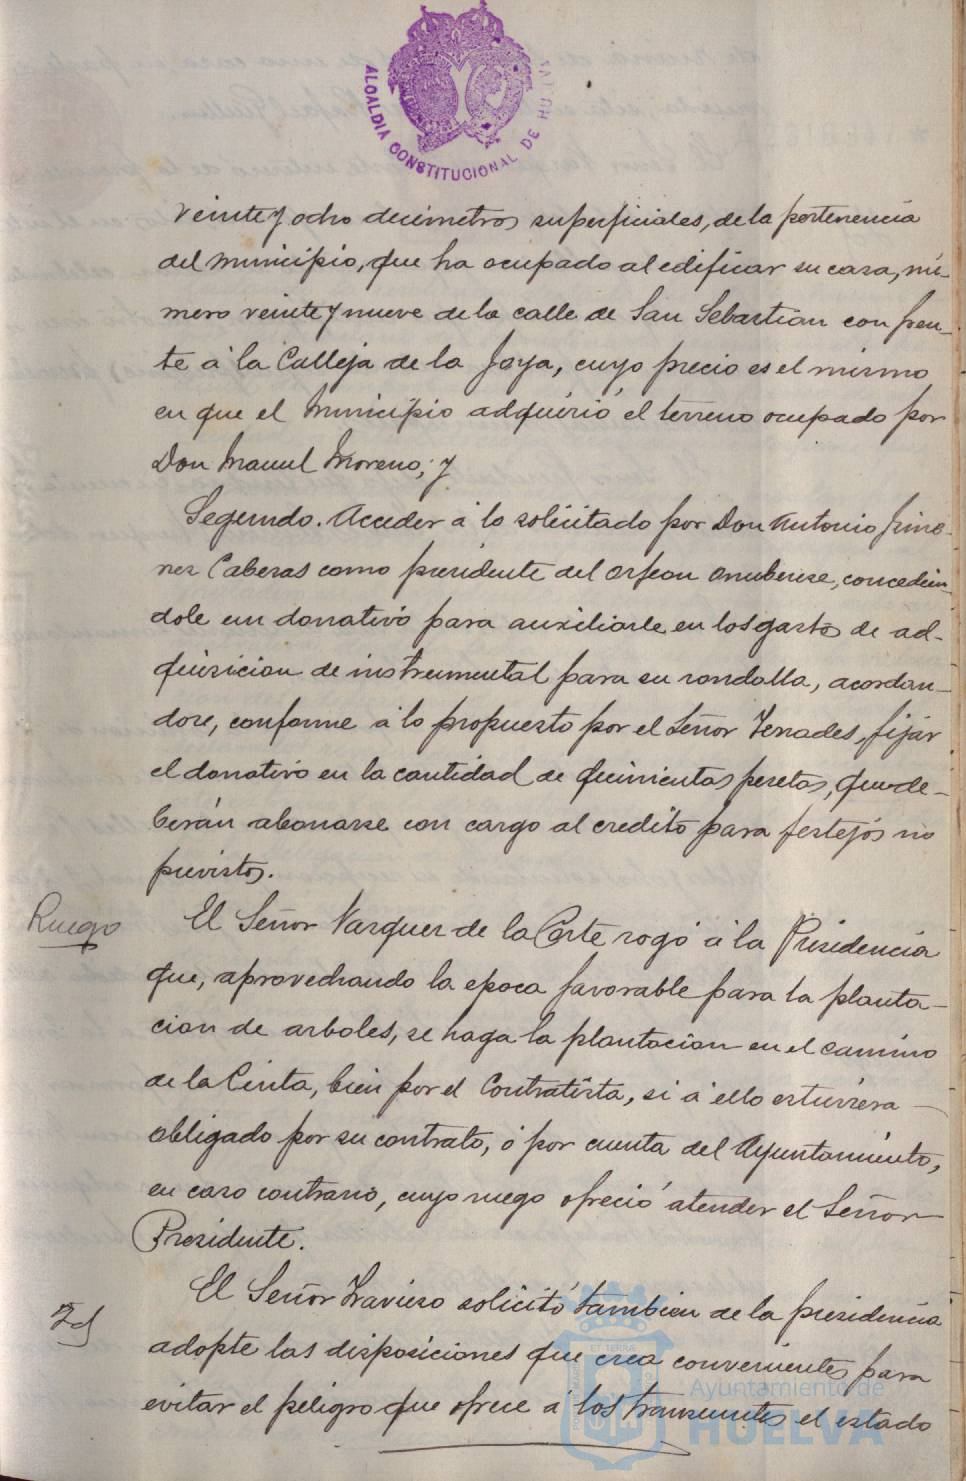 ALCALDIA CONSTITUCIONAL DE HUELVA
veinte y ocho decimetros superficiales, de la pertenencia
del municipio, que ha ocupado al edificar su casa, nú-
mero veinte y nueve de la calle de San Sebastian con fren-
te á la Calleja de la Joya, cuyo precio es el mismo
en que el Municipio adquirió el terreno ocupado por
Don Manuel Moreno; y
Segundo. Acceder á lo solicitado por Don Antonio Jime-
nez Cabezas como presidente del Orfeon Onubense, concedien-
dole un donativo para auxiliarle en los gastos de ad-
quisicion de instrumental para su rondalla, acordan-
dose, conforme á lo propuesto por el Señor Terrades, fijar
el donativo en la cantidad de quinientas pesetas, que de-
berán abonarse con cargo al credito para festejos no
previstos.
Ruego
El Señor Vazquez de la Corte rogó á la Presidencia
que, aprovechando la epoca favorable para la planta-
cion de arboles, se haga la plantacion en el camino
de la Cinta, bien por el Contratista, si á ello estuviera
obligado por su contrato, ó por cuenta del Ayuntamiento,
en caso contrario, cuyo ruego ofreció atender el Señor
Presidente.
Id
El Señor Travieso solicitó tambien de la presidencia
adopte las disposiciones que crea convenientes para
evitar el peligro que ofrece á los transeuntes el estado
Ayuntamiento de
HUELVA